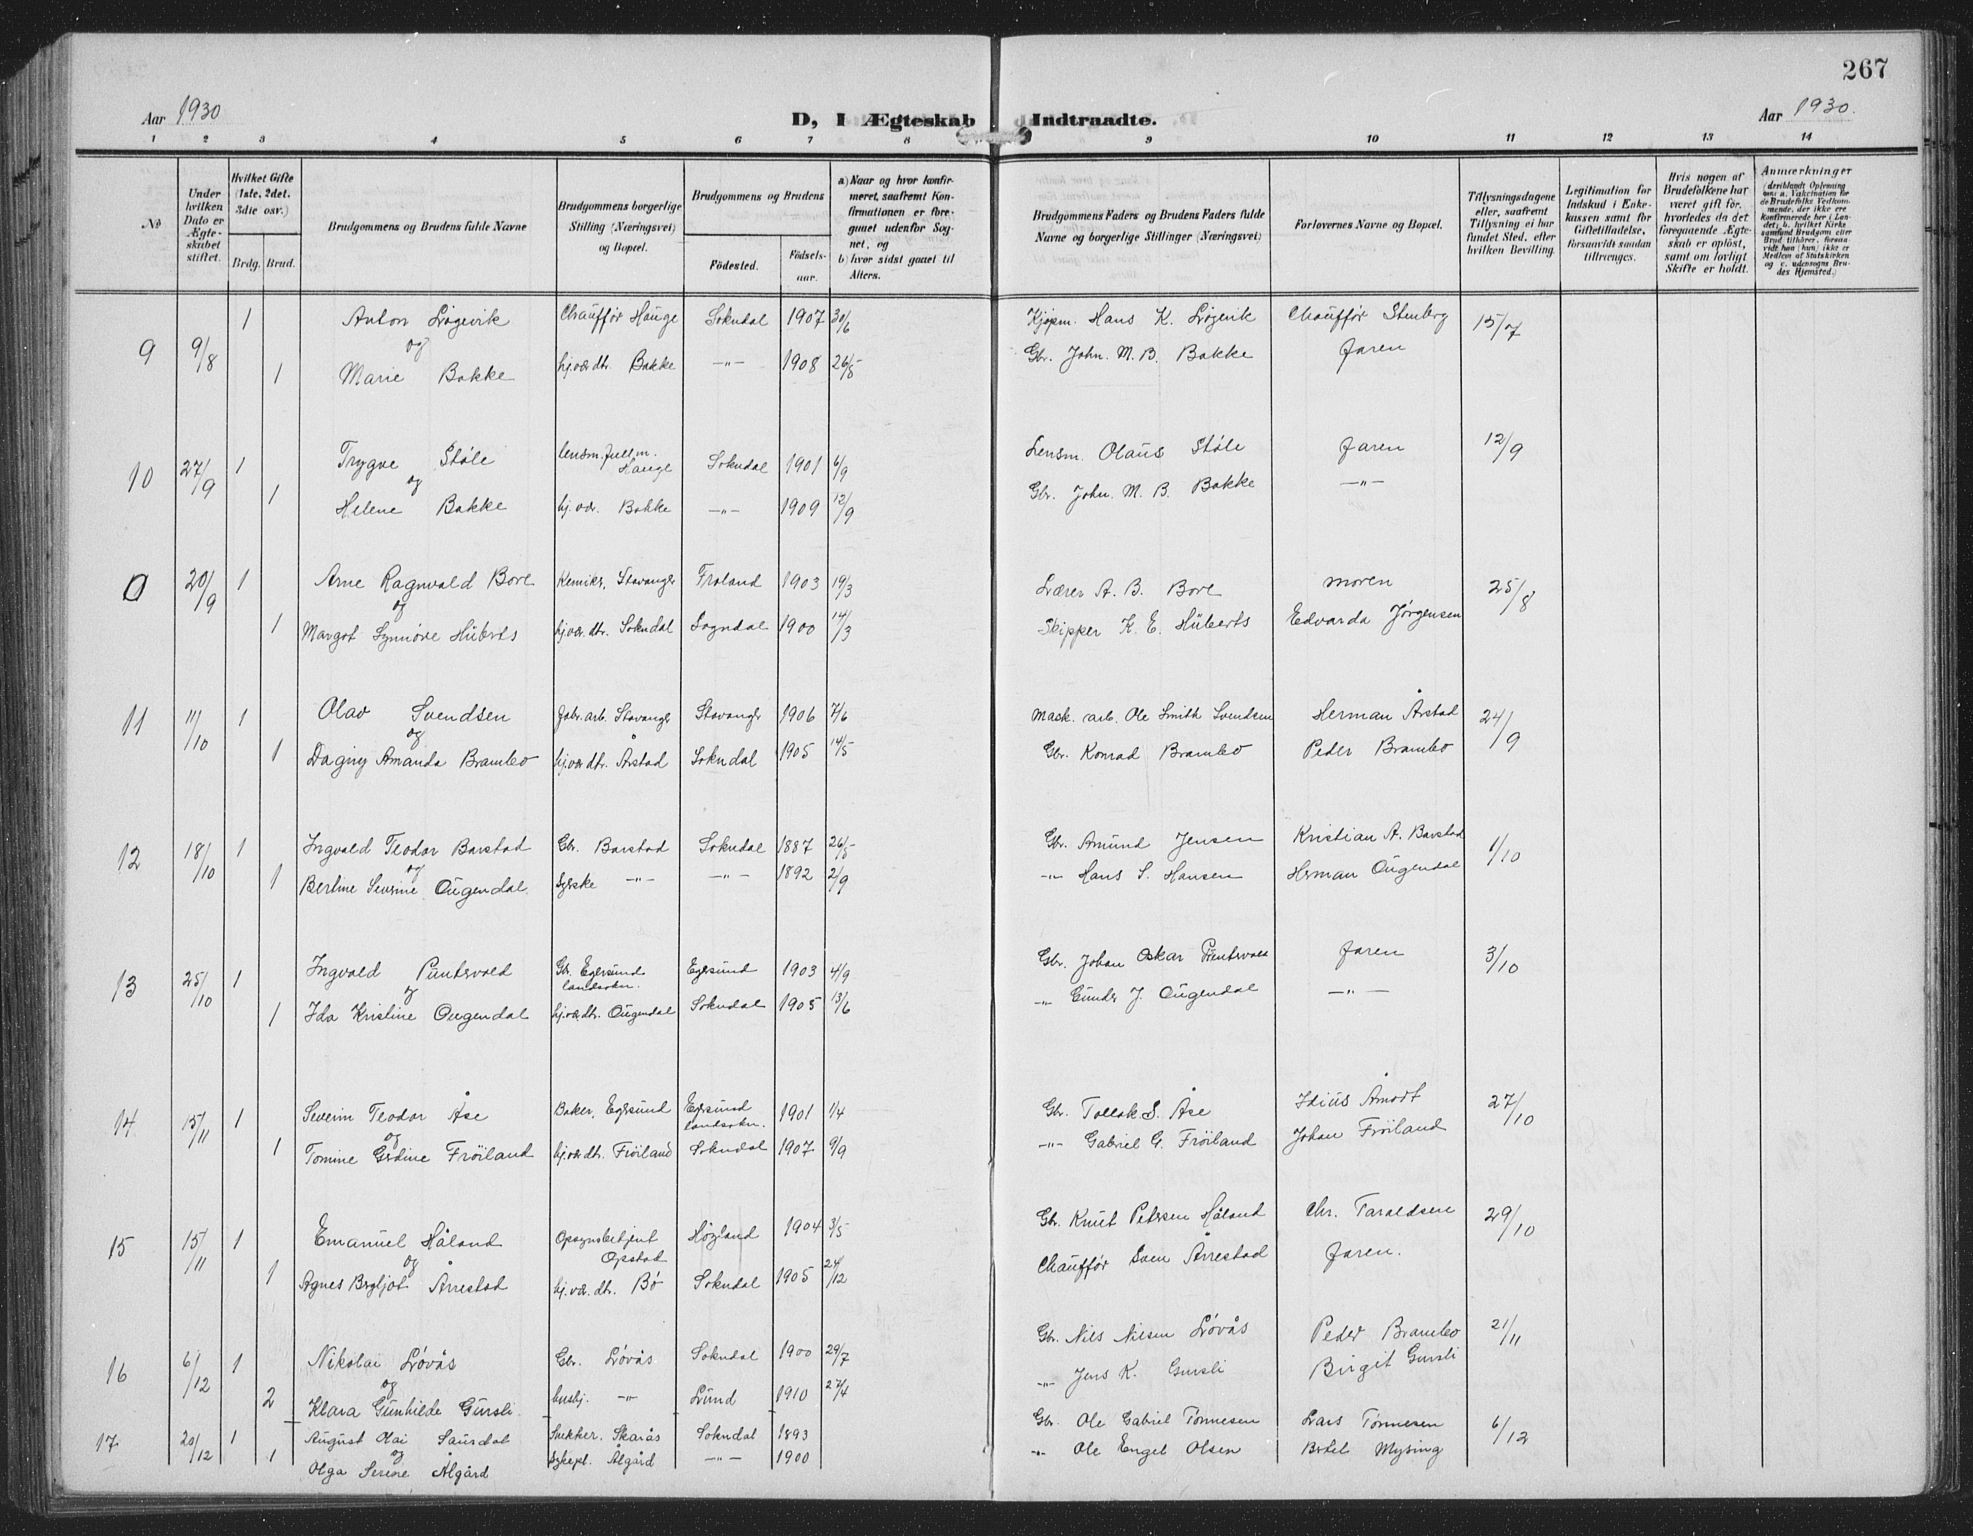 267
Aar 1930
D, I Ægteskab Indtraadte.
Aar 1930.
1 2 3 4 5 6 7 8 9 10 11 12 13 14
No
Under hvilken Dato er Ægteskabet stiftet.
Hvilket Gifte (1ste, 2det, 3die osv.)
Brdg. Brud.
Brudgommens og Brudens fulde Navne
Brudgommens borgerlige Stilling (Næringsvei) og Bopæl.
Brudgommens og Brudens
Fødested.
Fødselsaar.
a) Naar og hvor konfirmeret, saafremt Konfirmationen er foregaaet udenfor Sognet, og
b) hvor sidst gaaet til Alters.
Brudgommens Faders og Brudens Faders fulde Navne og borgerlige Stillinger (Næringsvei)
Forlovernes Navne og Bopæl.
Tillysningsdagene eller, saafremt Tillysning ei har fundet Sted, efter hvilken Bevilling.
Legitimation for Indskud i Enkekassen samt for Giftetilladelse, forsaavidt saadan tiltrænges.
Hvis nogen af Brudefolkene har været gift før, hvorledes da det foregaaende Ægteskab er opløst, samt om lovligt Skifte er holdt.
Anmærkninger
9 9/8 1 Anton Løgevik Chauffør Hauge Sokndal 1907 30/6 Kjøpm. Hans K. Løgevik Chauffør Stenberg 15/7
og
1 Marie Bakke hj.vær.dtr. Bakke -"- 1908 26/5 Gbr. John. M. B. Bakke faren
10 27/9 1 Trygve Støle lensm.fullm. Hauge Sokndal 1901 6/9 Lensm. Olaus Støle faren 12/9
og
1 Helene Bakke hj.vær. Bakke -"- 1909 12/9 Gbr. John. M. B. Bakke -"-
0 20/9 1 Arne Ragnvald Bore Kemiker, Stavanger Froland 1903 19/3 Lærer A. B. Bore moren 25/8
og
1 Margot Synnøve Hüberts hj.vær.dtr. Sokndal Sogndal 1900 14/3 Skipper K. E. Hüberts Edvarda Jørgensen
11 11/10 1 Olav Svendsen Fabr.arb. Stavanger Stavanger 1906 7/6 Mask. arb. Ole Smith Svendsen Herman Årstad 24/9
og
1 Dagny Amanda Brambo hj.vær.dtr. Årstad Sokndal 1905 14/5 Gbr. Konrad Brambo Peder Brambo
12 18/10 1 Ingvald Teodor Barstad Gbr. Barstad Sokndal 1887 26/5 Gbr. Amund Jensen Kristian A. Barstad 1/10
og
1 Bertine Severine Ougendal. Syerske -"- -"- 1892 2/9 -"- Hans S. Hansen Herman Ougendal
13 25/10 1 Ingvald Puntervold Gbr. Egersund landsokn. Egersund 1903 4/9 Gbr. Johan Oskar Puntervold faren 3/10
og
1 Ida Kristine Ougendal hj.vær.dtr. Ougendal Sokndal 1905 13/6 -"- Gunder J. Ougendal -"-
14 15/11 1 Severin Teodor Åse Baker, Egersund Egersund landsokn. 1901 1/4 Gbr. Tollak S. Åse Idius Åmodt 27/10
og
1 Tomine Gerdine Frøiland hj.vær.dtr. Frøiland Sokndal 1907 9/9 -"- Gabriel G. Frøiland Johan Frøiland
15 15/11 1 Emanuel Håland Opsynsbetjent Opstad Høyland 1904 3/5 Gbr. Knut Petersen Håland Chr. Taraldsen 29/10
og
1 Agnes Bergljot Årrestad hj.vær.dtr. Bø Sokndal 1905 24/12 Chauffør Sven Årrestad faren.
16 6/12 1 Nikolai Løvås Gbr. Løvås Sokndal 1900 29/7 Gbr. Nils Nilsen Løvås Peder Brambo 21/11
og
2 Klara Gunhilde Gursli. hushj. -"- Lund 1910 27/4 -"- Jens K. Gursli Birgit Gursli
17 20/12 1 August Olai Saurdal Snekker, Skarås Sokndal 1893 Gbr. Ole Gabriel Tønnesen Lars Tønnesen 6/12
og
1 Olga Serine Ålgård Sykepl. Ålgård -"- 1900 -"- Ole Engel Olsen Bertel Mysing